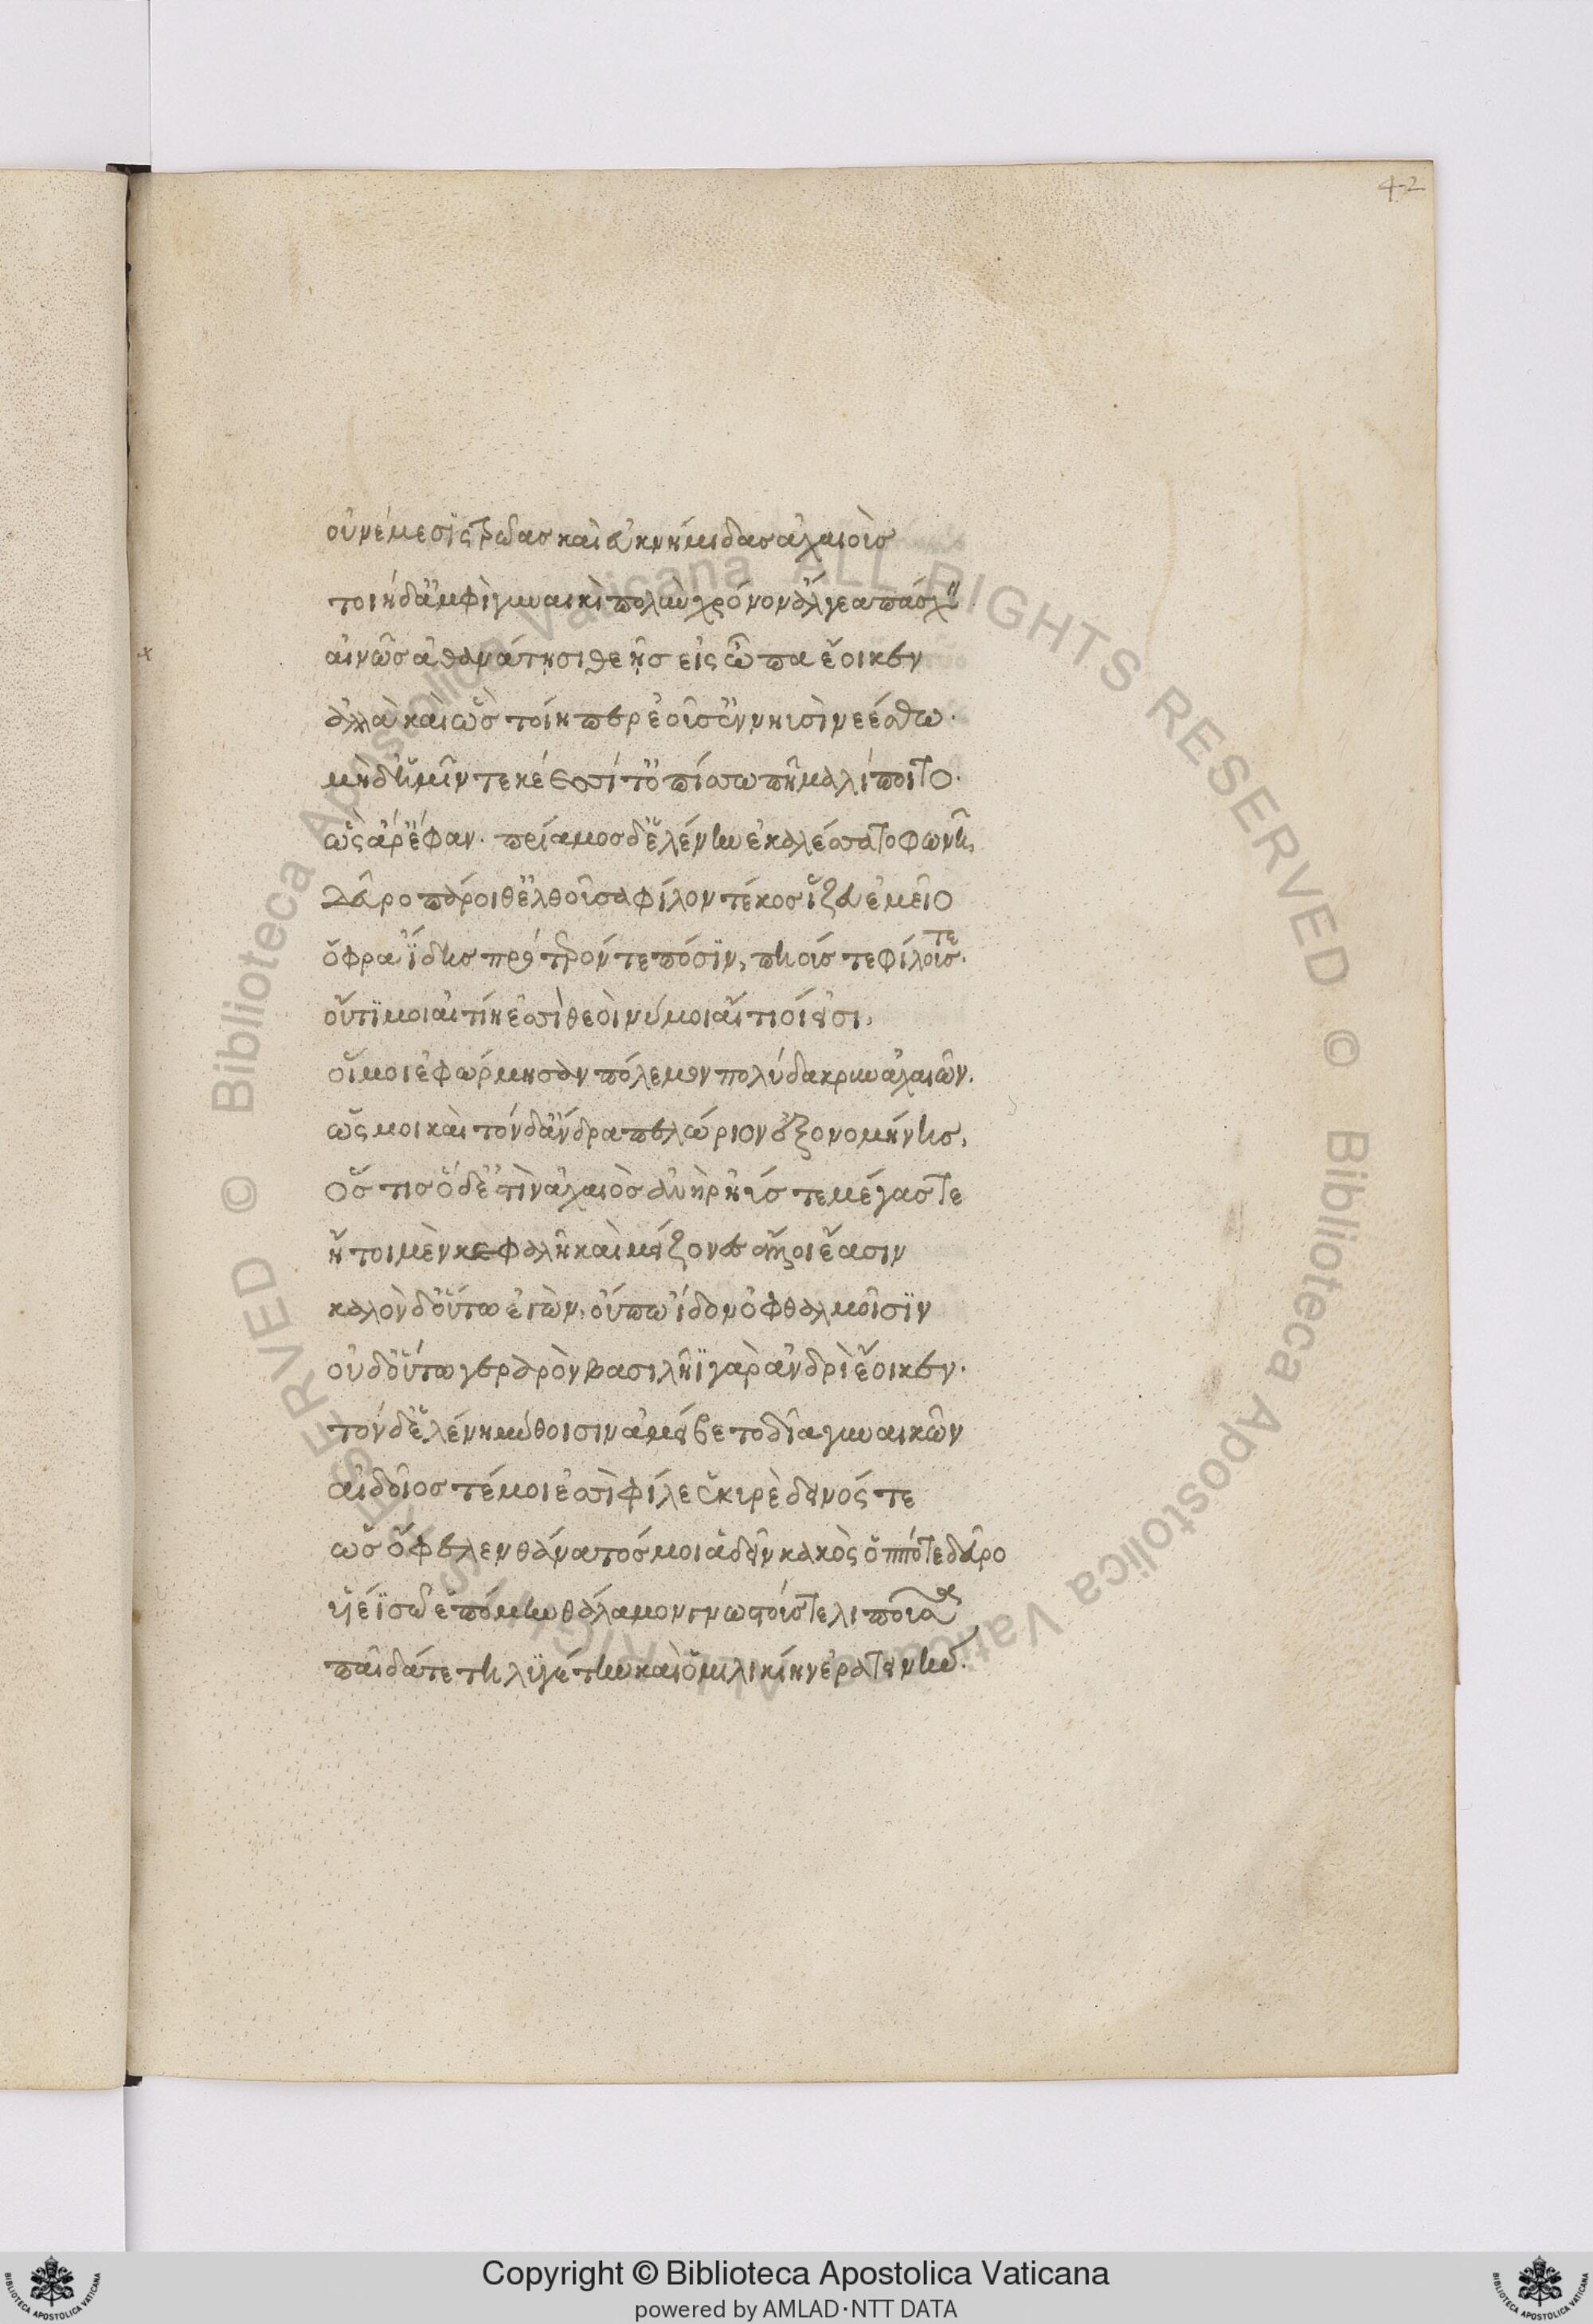 42
οὐ νέμεσις τρῶας καὶ ἐυκνήμιδας ἀχαιοὺς
τοιῆδ' ἀμφὶ γυναικὶ πολὺν χρόνον ἄλγεα πάσχειν
αἰνῶς ἀθανάτησι θεῆς εἰς ὦπα ἔοικεν
ἀλλὰ καὶ ὣς τοίη περ ἐοῦσ' ἐν νηυσὶ νεέσθω.
μὴδ' ἡμῖν τεκέεσσί τ' ὀπίσσω πῆμα λίποιτο.
ὣς ἄρ' ἔφαν. πρίαμος δ' ἑλένην ἐκαλέσσατο φωνῆ,
δεῦρο πάροιθ' ἐλθοῦσα φίλον τέκος ἵζευ ἐμεῖο
ὄφρα ἴδης πρότερόν τε πόσιν, πηούς τε φίλους τε.
οὔτι μοι αἰτίη ἐσσὶ θεοὶ νύ μοι αἴτιοί εἰσι,
οἵ μοι ἐφώρμησαν πόλεμον πολύδακρυν ἀχαιῶν.
ὥς μοι καὶ τόνδ' ἄνδρα πελώριον ἐξονομήνης,
ὅς τις ὅδ' ἐστὶν ἀχαιὸς ἀνὴρ ἠύς τε μέγας τε
ἤτοι μὲν κεφαλῆ καὶ μείζονες ἄλλοι ἔασιν
καλὸν δ' οὕτω ἐγὼν, οὔπω ἴδον ὀφθαλμοῖσιν
οὐδ' οὕτω γεραρὸν βασιλῆϊ γὰρ ἀνδρὶ ἔοικεν.
τόνδ' ἑλένη μύθοισιν ἀμείβετο δῖα γυναικῶν
αἰδοῖος τέ μοι ἐσσὶ φίλε ἑκυρὲ δεινός τε
ὡς ὄφελεν θάνατός μοι ἁδεῖν κακὸς ὁππότε δεῦρο
υἱέϊ σῶ ἑπόμην θάλαμον γνωτούς τε λιποῦσα
παῖδά τε τηλυγέτην καὶ ὁμηλικίην ἐρατεινήν.
Copyright © Biblioteca Apostolica Vaticana
powered by AMLAD·NTT DATA